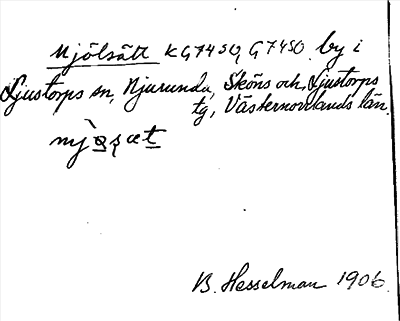 Mjölsätt KG7450, G7450 by i
Ljustorps sn, Njurunda, Sköns och Ljustorps
tg, Västernorrlands län.
B. Hesselman 1906.